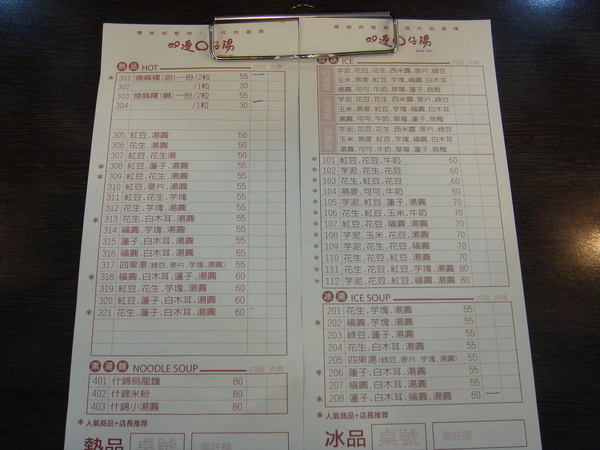 加連〇仔湯
熱品 HOT 內用 外帶
* 301 燒麻糬(甜)一份/2粒 55
302 /1粒 30
303 燒麻糬(鹹)一份/2粒 55
304 /1粒 30
305 紅豆.湯圓 50
306 花生.湯圓 50
307 紅豆.花生湯 50
* 308 紅豆.蓮子.湯圓 55
* 309 紅豆.花生.湯圓 55
310 紅豆.麥片.湯圓 55
311 紅豆.花生.芋塊 55
312 花生.芋塊.湯圓 55
* 313 花生.白木耳.湯圓 55
314 福圓.芋塊.湯圓 55
315 蓮子.白木耳.湯圓 55
316 福圓.白木耳.湯圓 55
317 四果湯(綠豆.麥片.芋塊.湯圓) 55
* 318 福圓.白木耳.蓮子.湯圓 60
319 紅豆.花生.芋塊.湯圓 60
320 紅豆.蓮子.白木耳.湯圓 60
* 321 花生.蓮子.白木耳.湯圓 60
素湯麵 NOODLE SOUP 內用 外帶
401 什錦烏龍麵 80
402 什錦米粉 80
403 什錦小湯圓 80
*人氣商品+店長推荐
熱品 桌號 備註欄
加連〇仔湯
冰 ICE 內用 外帶
芋泥.花豆.花生.西米露.麥片.綠豆
玉米.燕麥.紅豆.芋塊.福圓.白木耳
湯圓.可可.牛奶.草莓.蓮子.烏梅
芋泥.花豆.花生.西米露.麥片.綠豆
玉米.燕麥.紅豆.芋塊.福圓.白木耳
湯圓.可可.牛奶.草莓.蓮子.烏梅
芋泥.花豆.花生.西米露.麥片.綠豆
玉米.燕麥.紅豆.芋塊.福圓.白木耳
湯圓.可可.牛奶.草莓.蓮子.烏梅
* 101 紅豆.花豆.牛奶 60
* 102 芋泥.花生.花豆 60
* 103 花生.紅豆.花豆 60
* 104 燕麥.可可.牛奶 60
* 105 芋泥.紅豆.蓮子.湯圓 70
* 106 花生.紅豆.玉米.牛奶 70
* 107 福圓.紅豆.芋塊.湯圓 70
* 108 芋泥.玉米.花豆.湯圓 70
* 109 芋泥.花生.花豆.福圓 70
* 110 芋泥.花生.紅豆.花豆 70
* 111 花生.花豆.紅豆.芋塊.湯圓 80
* 112 芋泥.花豆.紅豆.福圓.湯圓 80
冰湯 ICE SOUP 內用 外帶
201 花生.芋塊.湯圓 55
* 202 福圓.芋塊.湯圓 55
203 綠豆.蓮子.湯圓 55
204 花生.白木耳.湯圓 55
205 四果湯(綠豆.麥片.芋塊.湯圓) 55
* 206 蓮子.白木耳.湯圓 55
207 福圓.白木耳.湯圓 55
* 208 蓮子.白木耳.福圓.湯圓 60 一
*人氣商品+店長推荐
冰品 桌號 備註欄